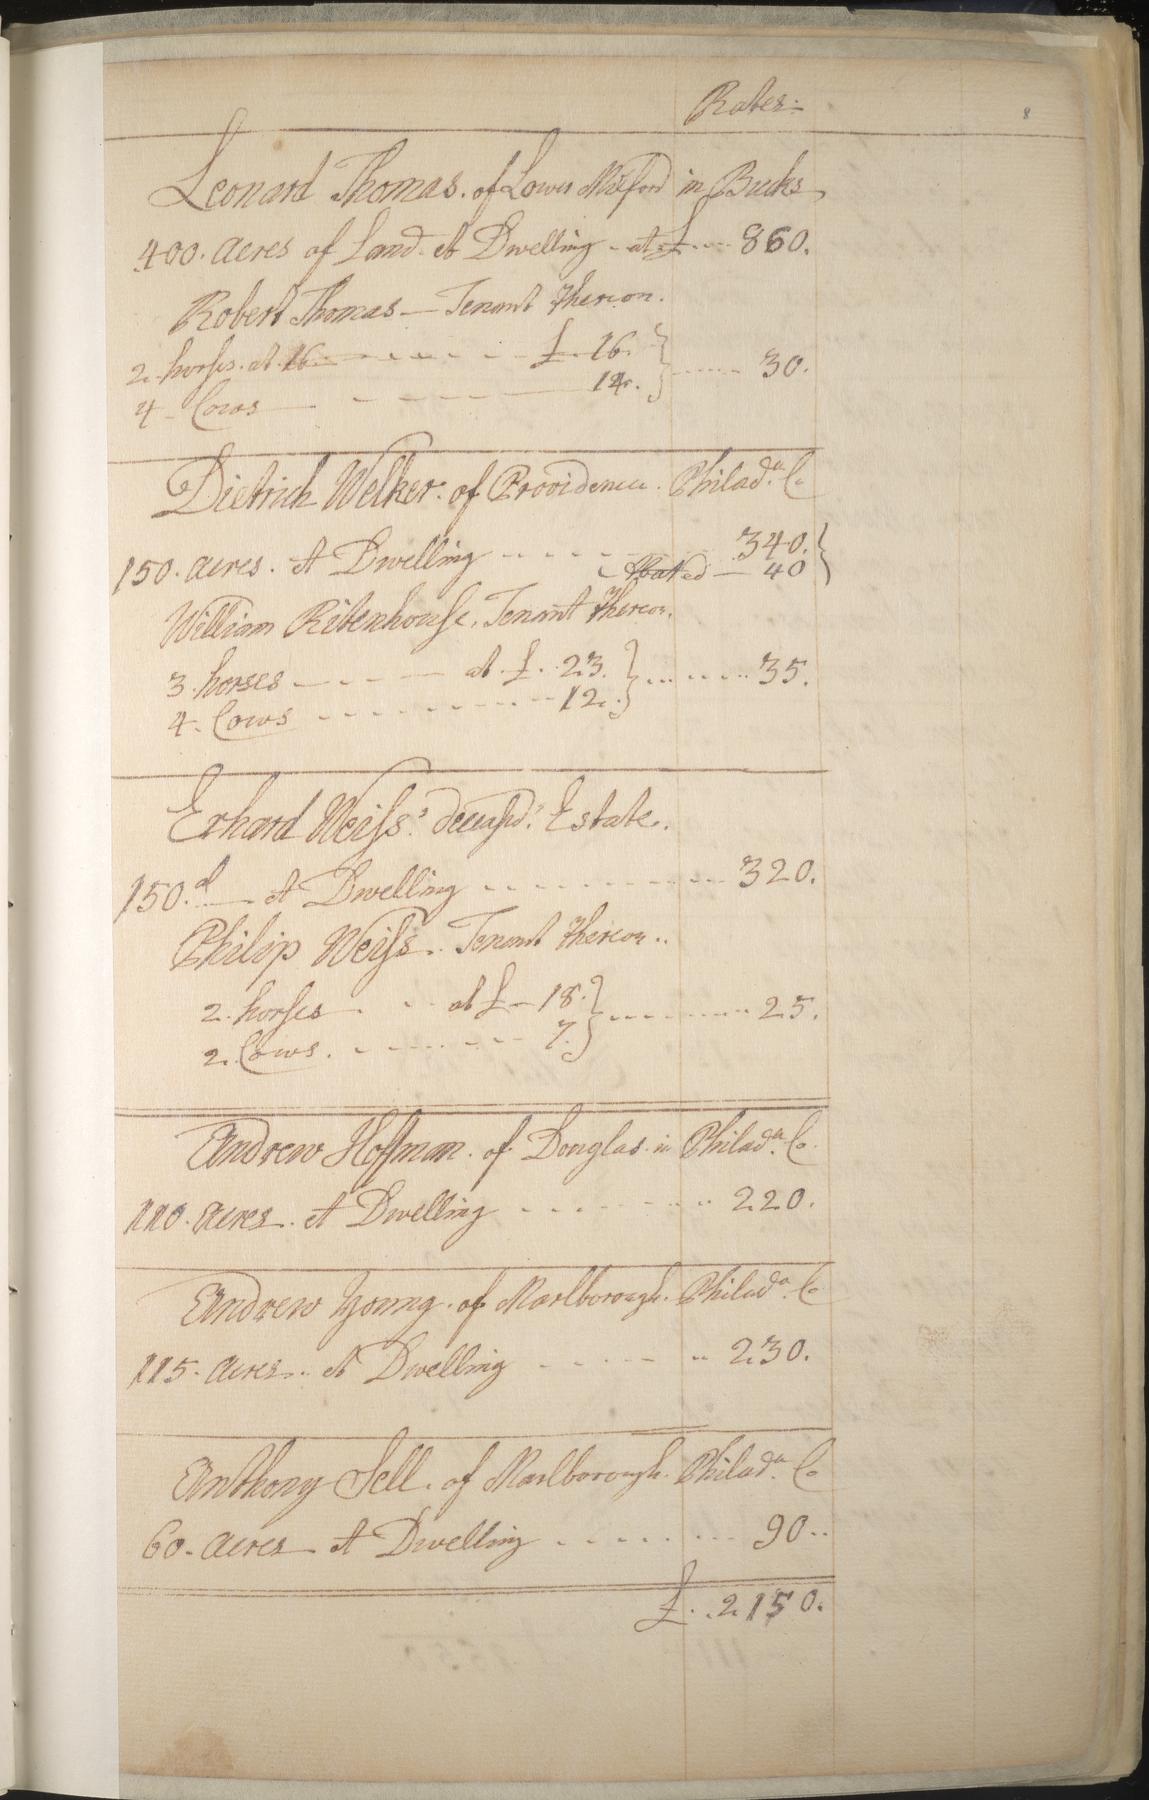 Rates:
8
Leonard Thomas. of Lower Milford in Bucks
400. Acres of Land. & Dwelling - at £ .... 860.
Robert Thomas — Tenant thereon.
2. horses. at 16 - - - - £. 16. } ...... 30.
4 - Cows — - - - — 14. }
Dietrich Welker. of Providence. Philada. Co
150. acres. & Dwelling - - - - 340. }
40 }
William Ritenhouse, Tenant thereon.
3. horses - - - - at £. 23. } ....... 35.
4. Cows - - - - - - - 12. }
Erhard Weiss's deceasd. Estate.
150. d — & Dwelling - - - - - - - 320.
Philip Weiss. Tenant thereon..
2. horses . - - at £ - 18. } ......... 25.
2. Cows. - - - - - 7. }
Andrew Hoffman. of Douglas. in Philada. Co.
110. acres. & Dwelling - - - - - 220.
Andrew Young. of Marlborough. Philada. Co
115. acres.. & Dwelling - - - - .. 230.
Anthony Sell. of Marlborough. Philada. Co
60. acres & Dwelling - - - - - 90..
£. . 2150.